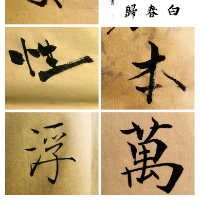 歸春白
性
本
浮
萬